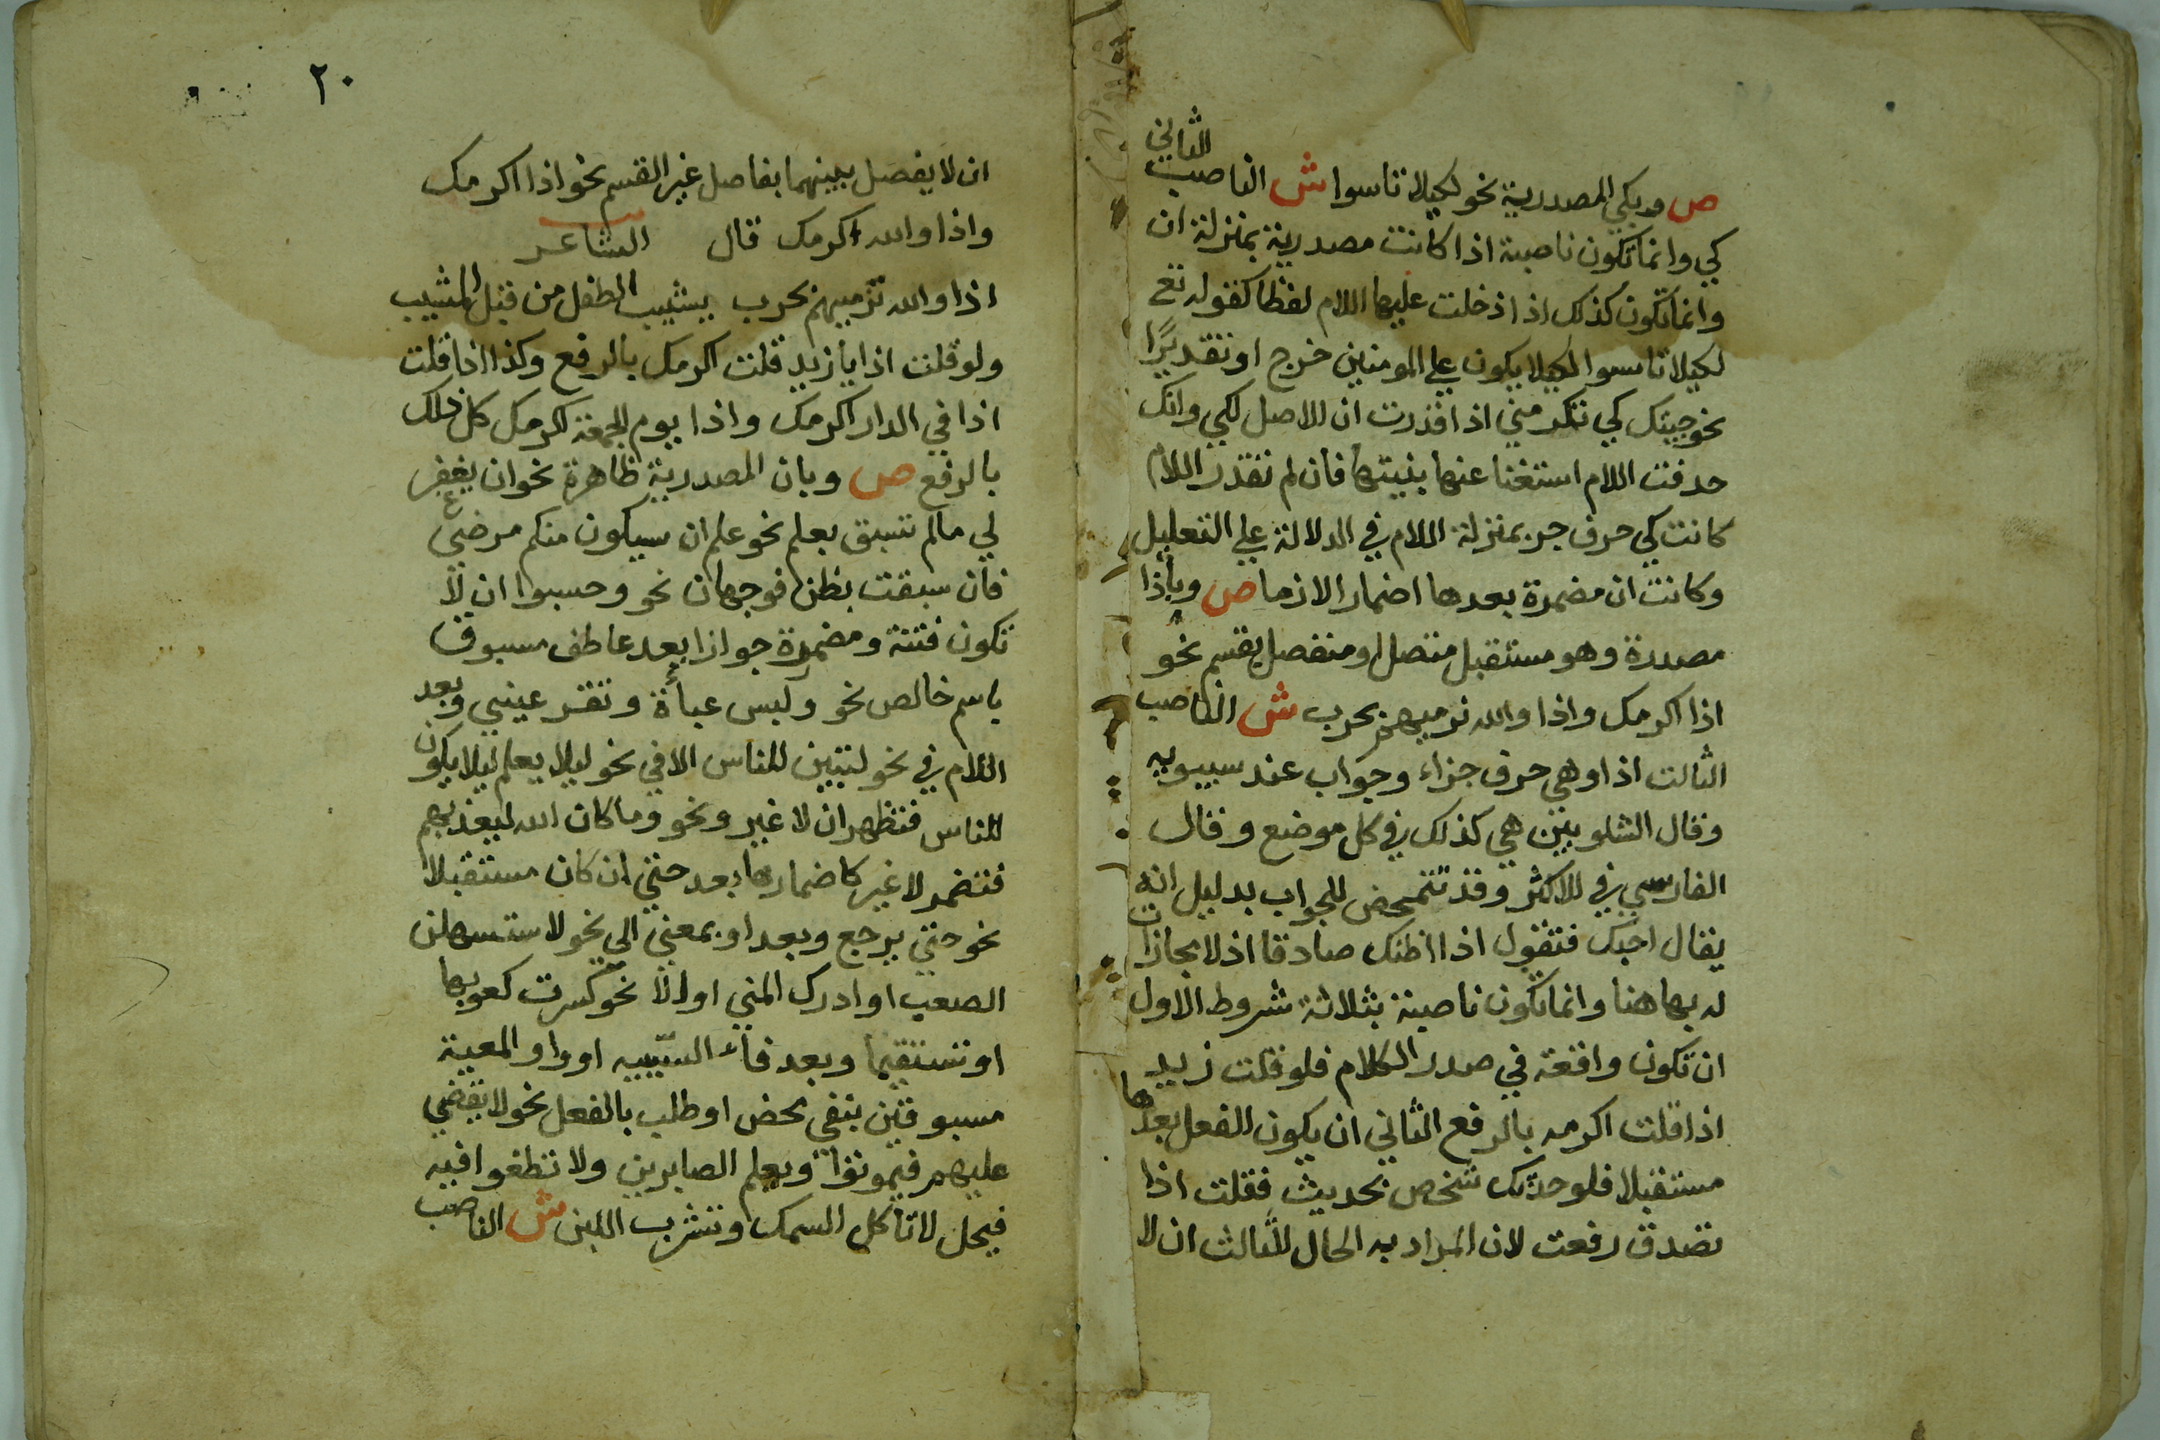 ص وبكي المصدرية نحو لكيلا تاسوا ش الناصب الثاني
كي وانما تكون ناصبة اذا كانت مصدرية بمنزلة ان
وانما تكون كذلك اذا دخلت عليها اللام لفظا كقوله تع
لكيلا تاسوا لكيلا يكون علي المومنين حرج او تقديرًا
نحو جيتك كي تكرمني اذا قدرت ان الاصل لكي وانك
حدفت اللام استغنا عنها بنيتها فان لم تقدر اللام
كانت كي حرف جر بمنزلة اللام في الدلالة علي التعليل
وكانت ان مضمرة بعدها اضمارا لازما ص وبأذا
مصدرة وهو مستقبل متصل او منفصل بقسم نحو
اذا اكرمك واذا والله نرميهم بحرب ش الناصب
الثالث اذا وهي حرف جزاء وجواب عند سيبويه
وقال الشلوبين هي كذلك في كل موضع وقال
الفارسي في الاكثر وقد تتمحض للجواب بدليل انه
يقال احبك فتقول اذا اظنك صادقا اذ لا مجازات
له بها هنا وانما تكون ناصبة بثلاثة شروط الاول
ان تكون واقعة في صدر الكلام فلو قلت زيد
اذا قلت اكرمه بالرفع الثاني ان يكون الفعل بعدها
مستقبلا فلو حدثك شخص بحديث فقلت اذا
تصدق رفعت لان المراد به الحال الثالث ان لا
٢٠
ان لا يفصل بينهما بفاصل غير القسم نحو اذا اكرمك
واذا والله اكرمك قال الشاعر
اذا والله نرميهم بحرب يشيب الطفل من قبل المشيب
ولو قلت اذا يا زيد قلت اكرمك بالرفع وكذا اذا قلت
اذا في الدار اكرمك واذا يوم الجمعة اكرمك كل ذلك
بالرفع ص وبان المصدرية ظاهرة نحو ان يغفر
لي مالم تسبق بعلم نحو علم ان سيكون منكم مرضي
فان سبقت بظن فوجهان نحو وحسبوا ان لا
تكون فتنة ومضمرة جوازا بعد عاطف مسبوق
باسم خالص نحو ولبس عباءة وتقر عيني وبعد
اللام في نحو لتبين للناس الا في نحو ليلا يعلم ليلا يكون
للناس فتظهر ان لا غير ونحو وما كان الله ليعذبهم
فتضمر لا غير كاضمارها بعد حتي ان كان مستقبلا
نحو حتي يرجع وبعد او بمعني الي نحو لاستسهلن
الصعب او ادرك المني او الا نحو كسرت كعوبها
او تستقيما وبعد فاء السببيه او واو المعية
مسبوقين بنفي محض او طلب بالفعل نحو لا يقضي
عليهم فيموتوا ويعلم الصابرين ولا تطغوا فيه
فيحل لا تاكل السمك وتشرب اللبن ش الناصب